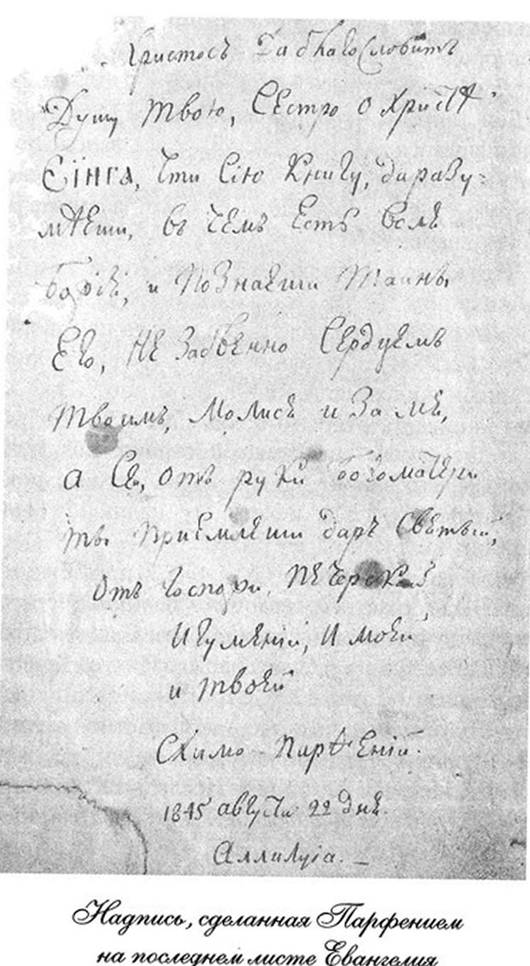 Христосъ Да благословитъ
Душу твою, Сестро о Христѣ
Сїнга, Чти Сію Книгу, да разу-
мѣеши, въ чемъ Есть воля
божія, и Познаеши Тайны
Его, НЕ Забвенно Сердцемъ
Твоимъ, Молися и За мя,
а Се, отъ руки богоматери
ты Приемлеши даръ Святый,
отъ Госпожи, ПЕЧерской
Игуменіи, И моей
и твоей
Схимо-Парѳеній.
1845 августа 22 дня.
Аллилуіа.
Надпись, сделанная Парфением
на последнем листе Евангелия